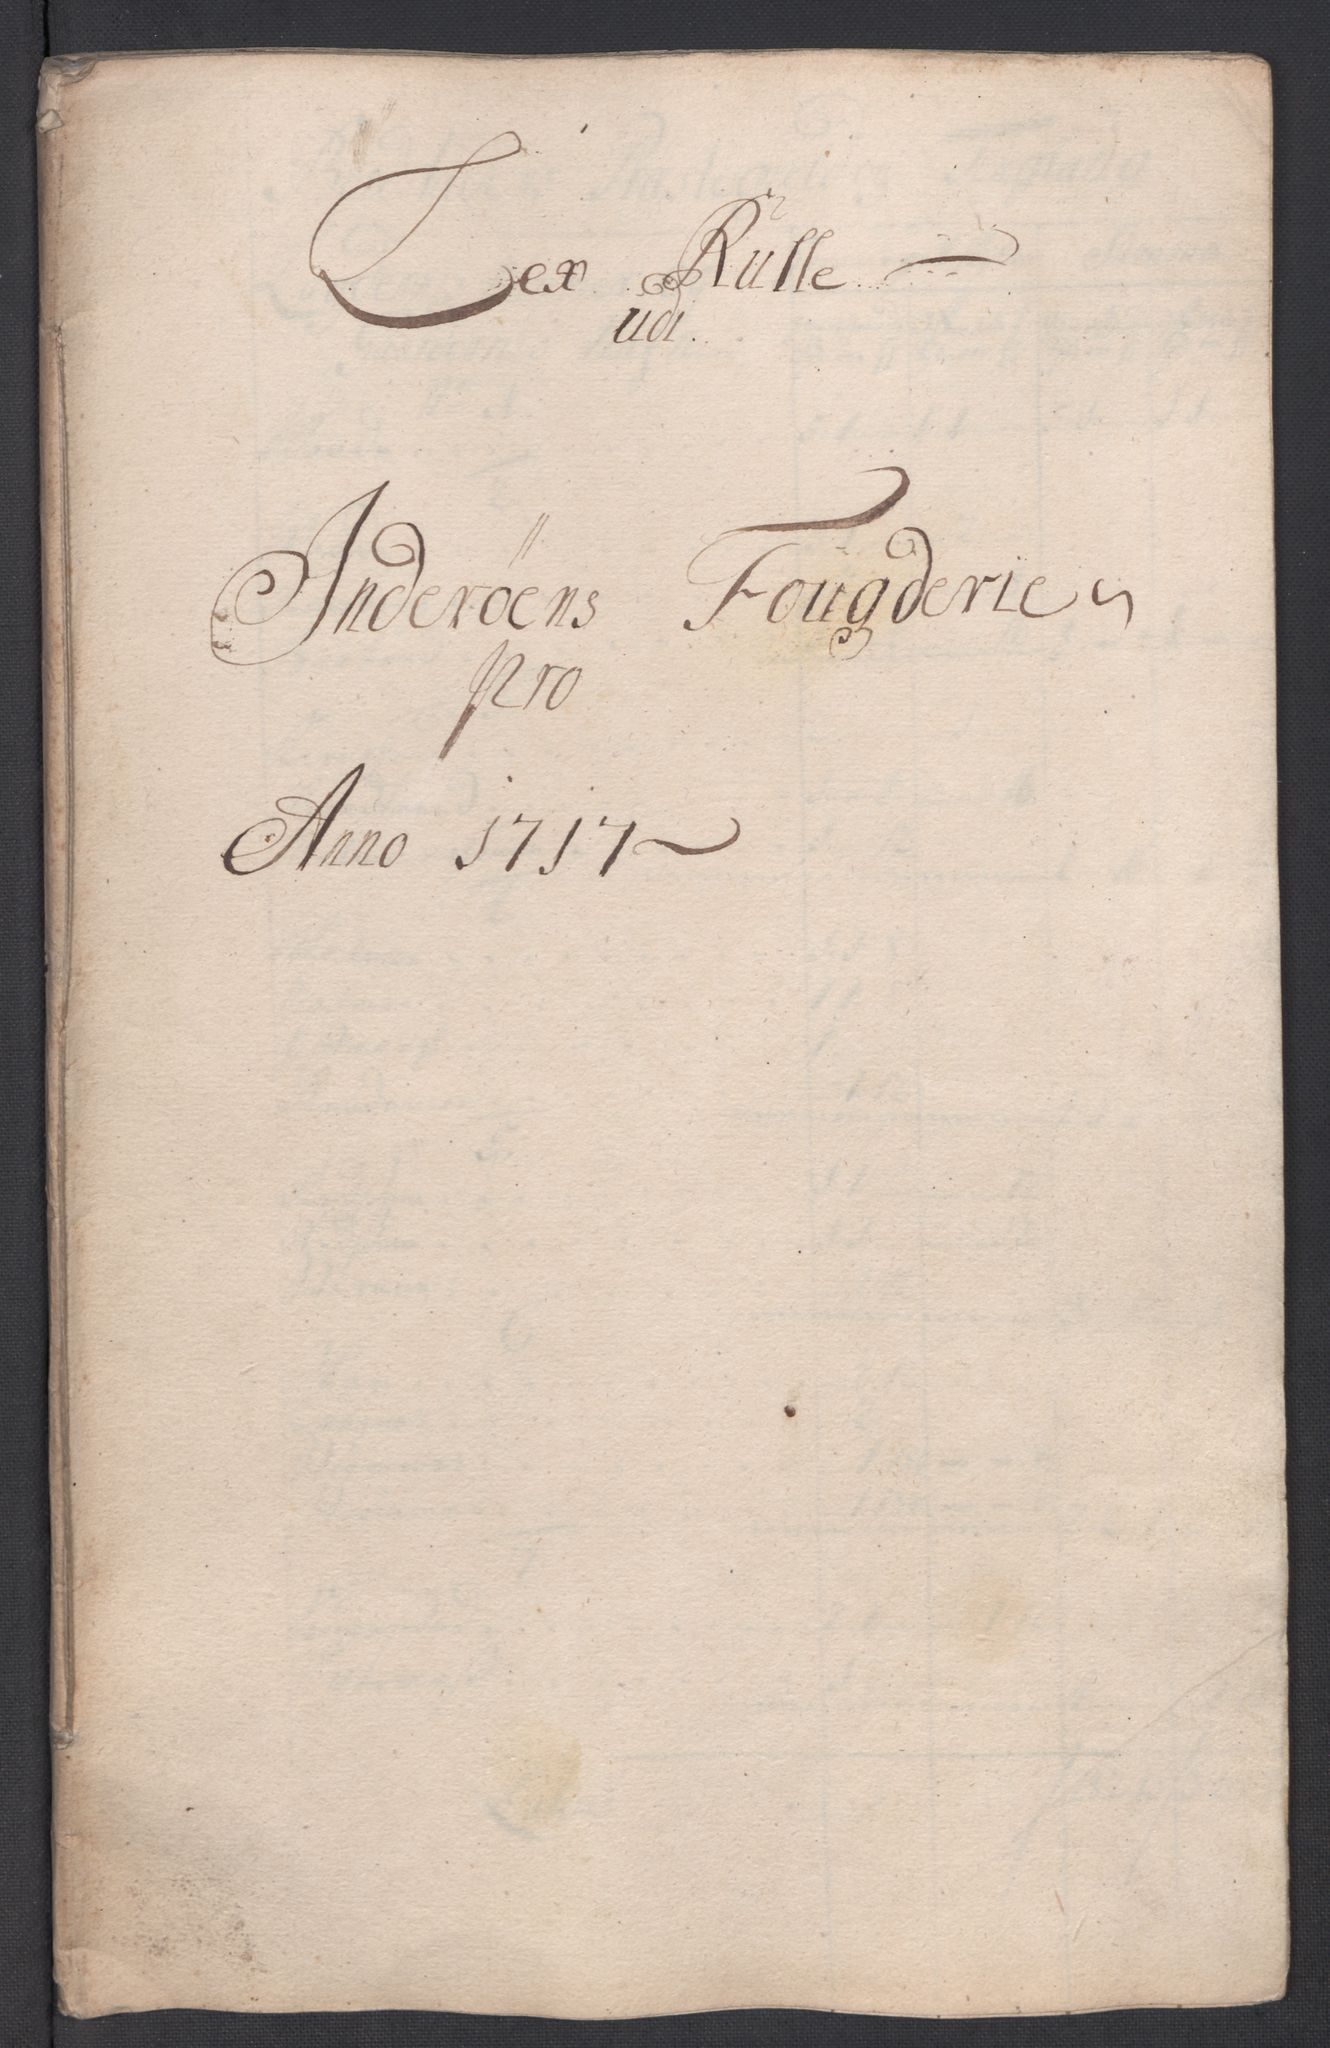 Lex Rulle
udi.
Inderöens Fougderie
pro
Anno 1717